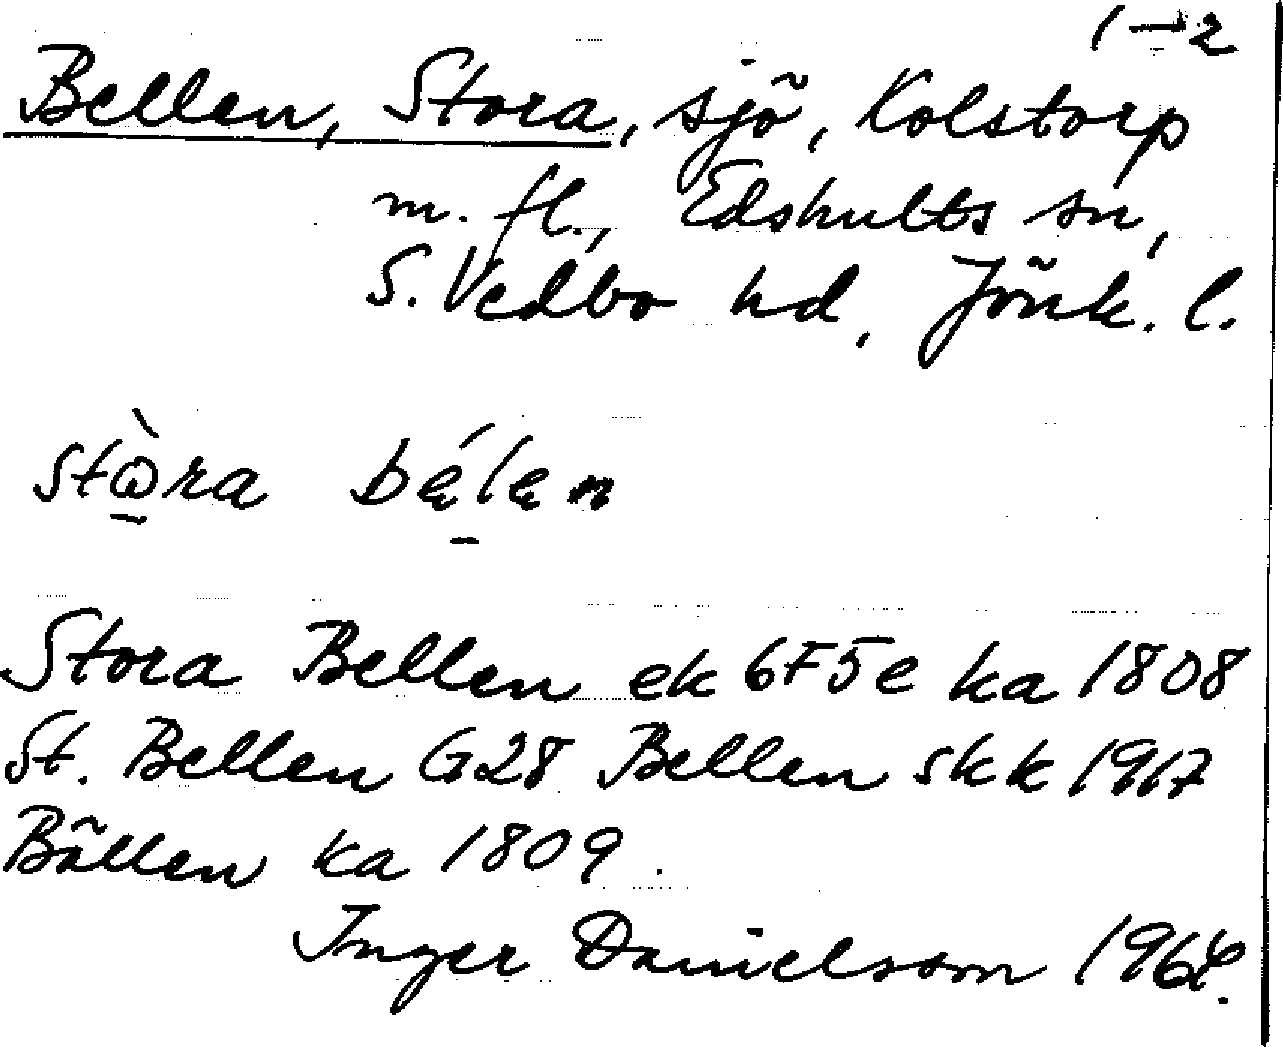 1–2
Bellen, Stora, sjö, Kolstorp
m. fl., Edshults sn,
S. Vedbo hd, Jönk. l.
stὼra bę́lęn
Stora Bellen ek 6F5e ka 1808
St. Bellen G28 Bellen skk 1917
Bällen ka 1809.
Inger Danielsson 1964.